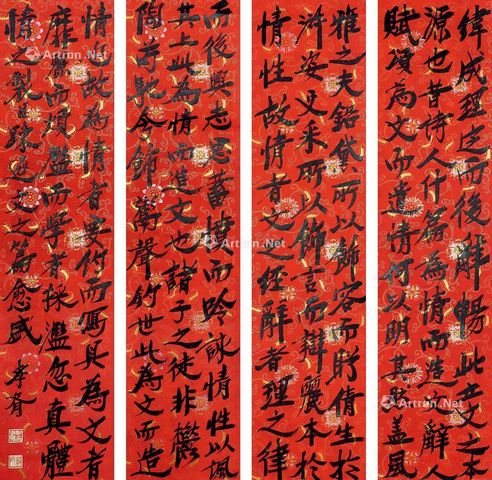 緯成理定而後辭暢此立文之本
源也昔詩人什篇為情而造文辭人
賦頌為文而造情何以明其然蓋風
雅之夫鉛黛所以飾容而盼倩生於
淑姿文采所以飾言而辯麗本於
情性故情者文之經辭者理之律
而後興志思蓄憤而吟詠情性以諷
其上此為情而造文也諸子之徒非鬱
陶苟馳夸飾鬻聲釣世此為文而造
情故為情者要約而寫真為文者
靡麗而煩濫而學者採濫忽真體
情之製日疏逐文之篇愈盛 孝胥
Artron.Net
Artron.Net
Artron.Net
Artron.Net
Artron.Net